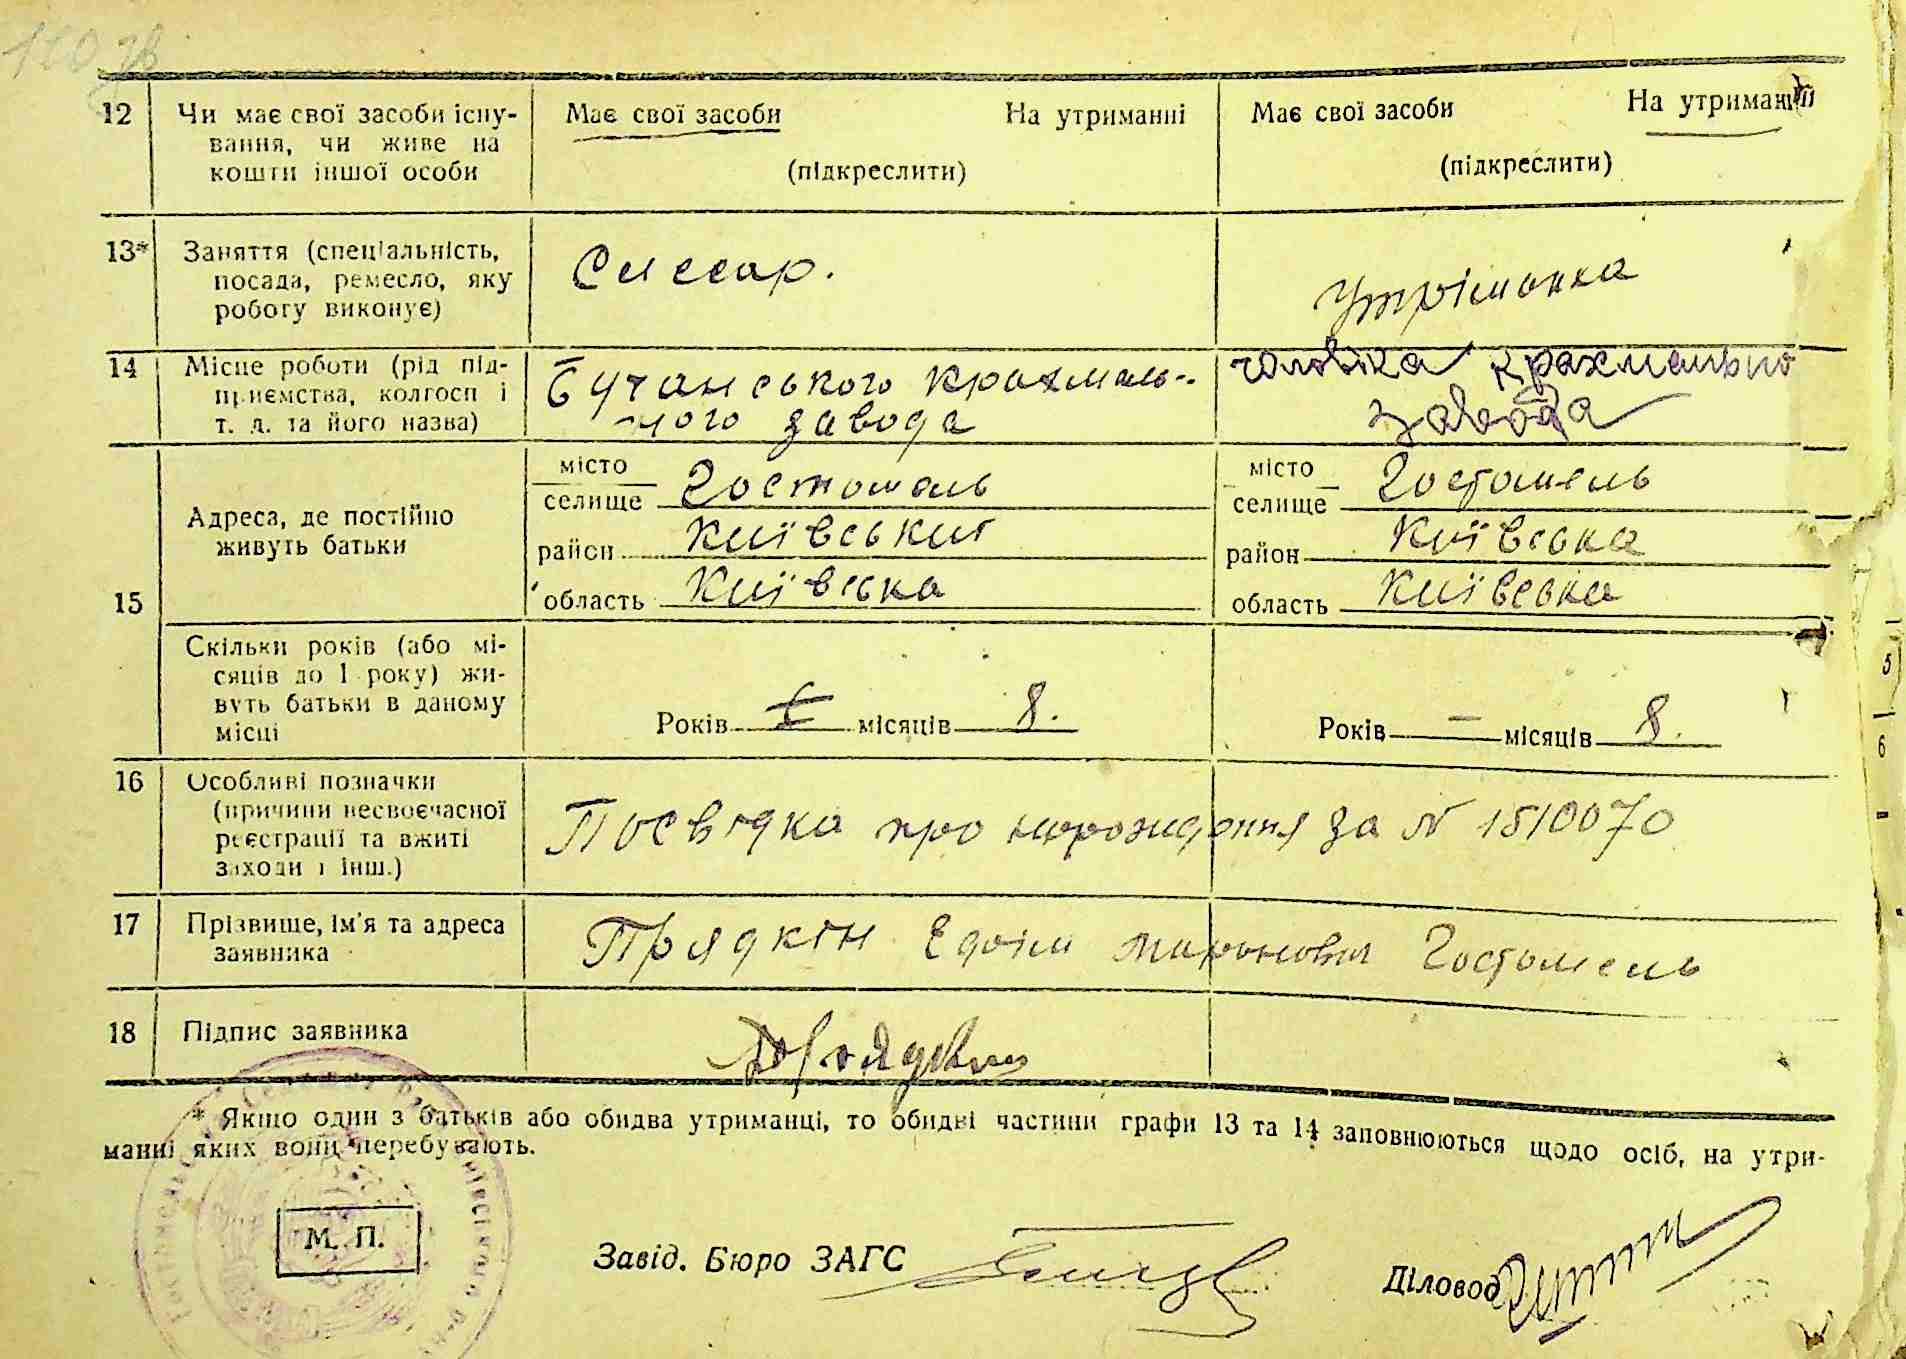 110 зв
12 Чи має свої засоби існу- Має свої засоби На утриманні Має свої засоби На утриманні
вання, чи живе на (підкреслити) (підкреслити)
кошти іншої особи
13* Заняття (спеціальність, Слесар. Утріманка
посада, ремесло, яку
роботу виконує)
14 Місце роботи (рід під- Бучанського крахмаль- чоловіка крахмально
приємства, колгосп і ного завода завода
т. д. та його назва)
15 Адреса, де постійно
живуть батьки
місто
селище Гостомель
район Київський
область Київська
місто
селище Гостомель
район Київська
область Київська
Скільки років (або мі-
сяців до 1 року) жи-
вуть батьки в даному
місці
Років місяців 8. Років — місяців 8.
16 Особливі позначки
(причини несвоєчасної
реєстрації та вжиті
заходи і інш.)
Посвідка про нарождення за N 1510070
17 Прізвище, ім'я та адреса
заявника
Прядкін Маркович Гостомель
18 Підпис заявника
* Якщо один з батьків або обидва утриманці, то обидві частини графи 13 та 14 заповнюються щодо осіб, на утри-
манні яких вони перебувають.
М. П.
Завід. Бюро ЗАГС Діловод
5
6